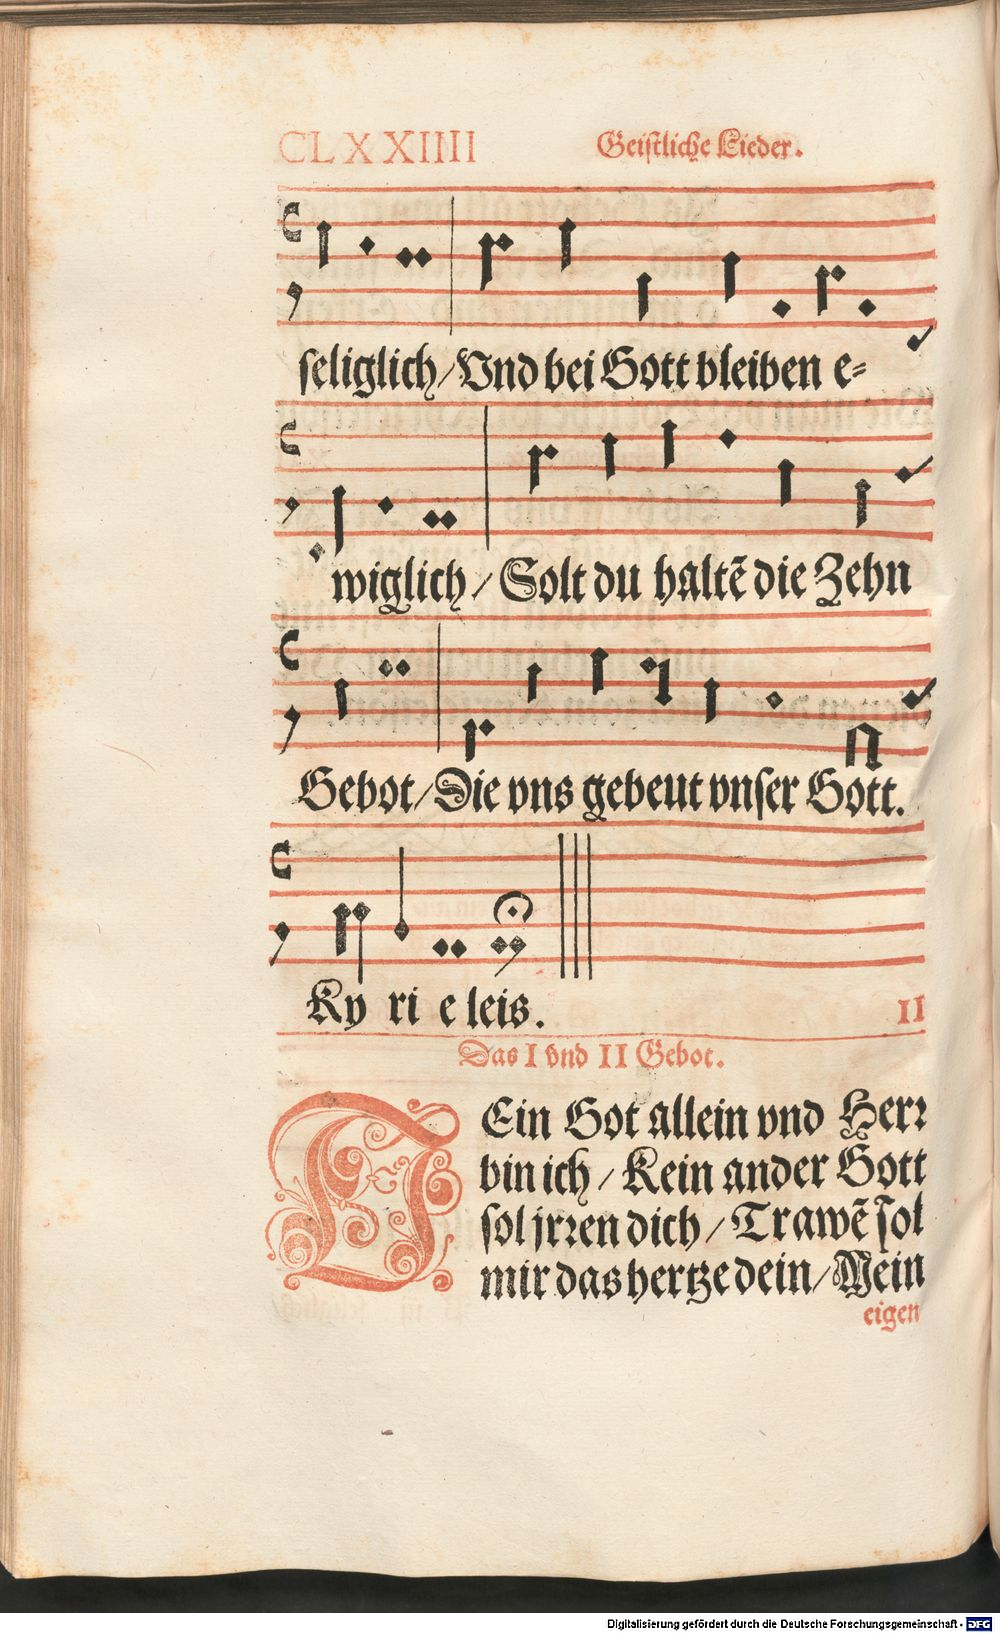 CLXXIIII Geistliche Lieder.
seliglich/ Vnd bei Gott bleiben e⸗
wiglich/ Solt du haltẽ die Zehn
Gebot/ Die vns gebeut vnser Gott.
Ky ri e leis.
II
Das I vnd II Gebot.
Ein Got allein vnd Herꝛ
bin ich/ Kein ander Gott
sol jrꝛen dich/ Trawẽ sol
mir das hertze dein/ Mein
eigen
Digitalisierung gefördert durch die Deutsche Forschungsgemeinschaft - DFG